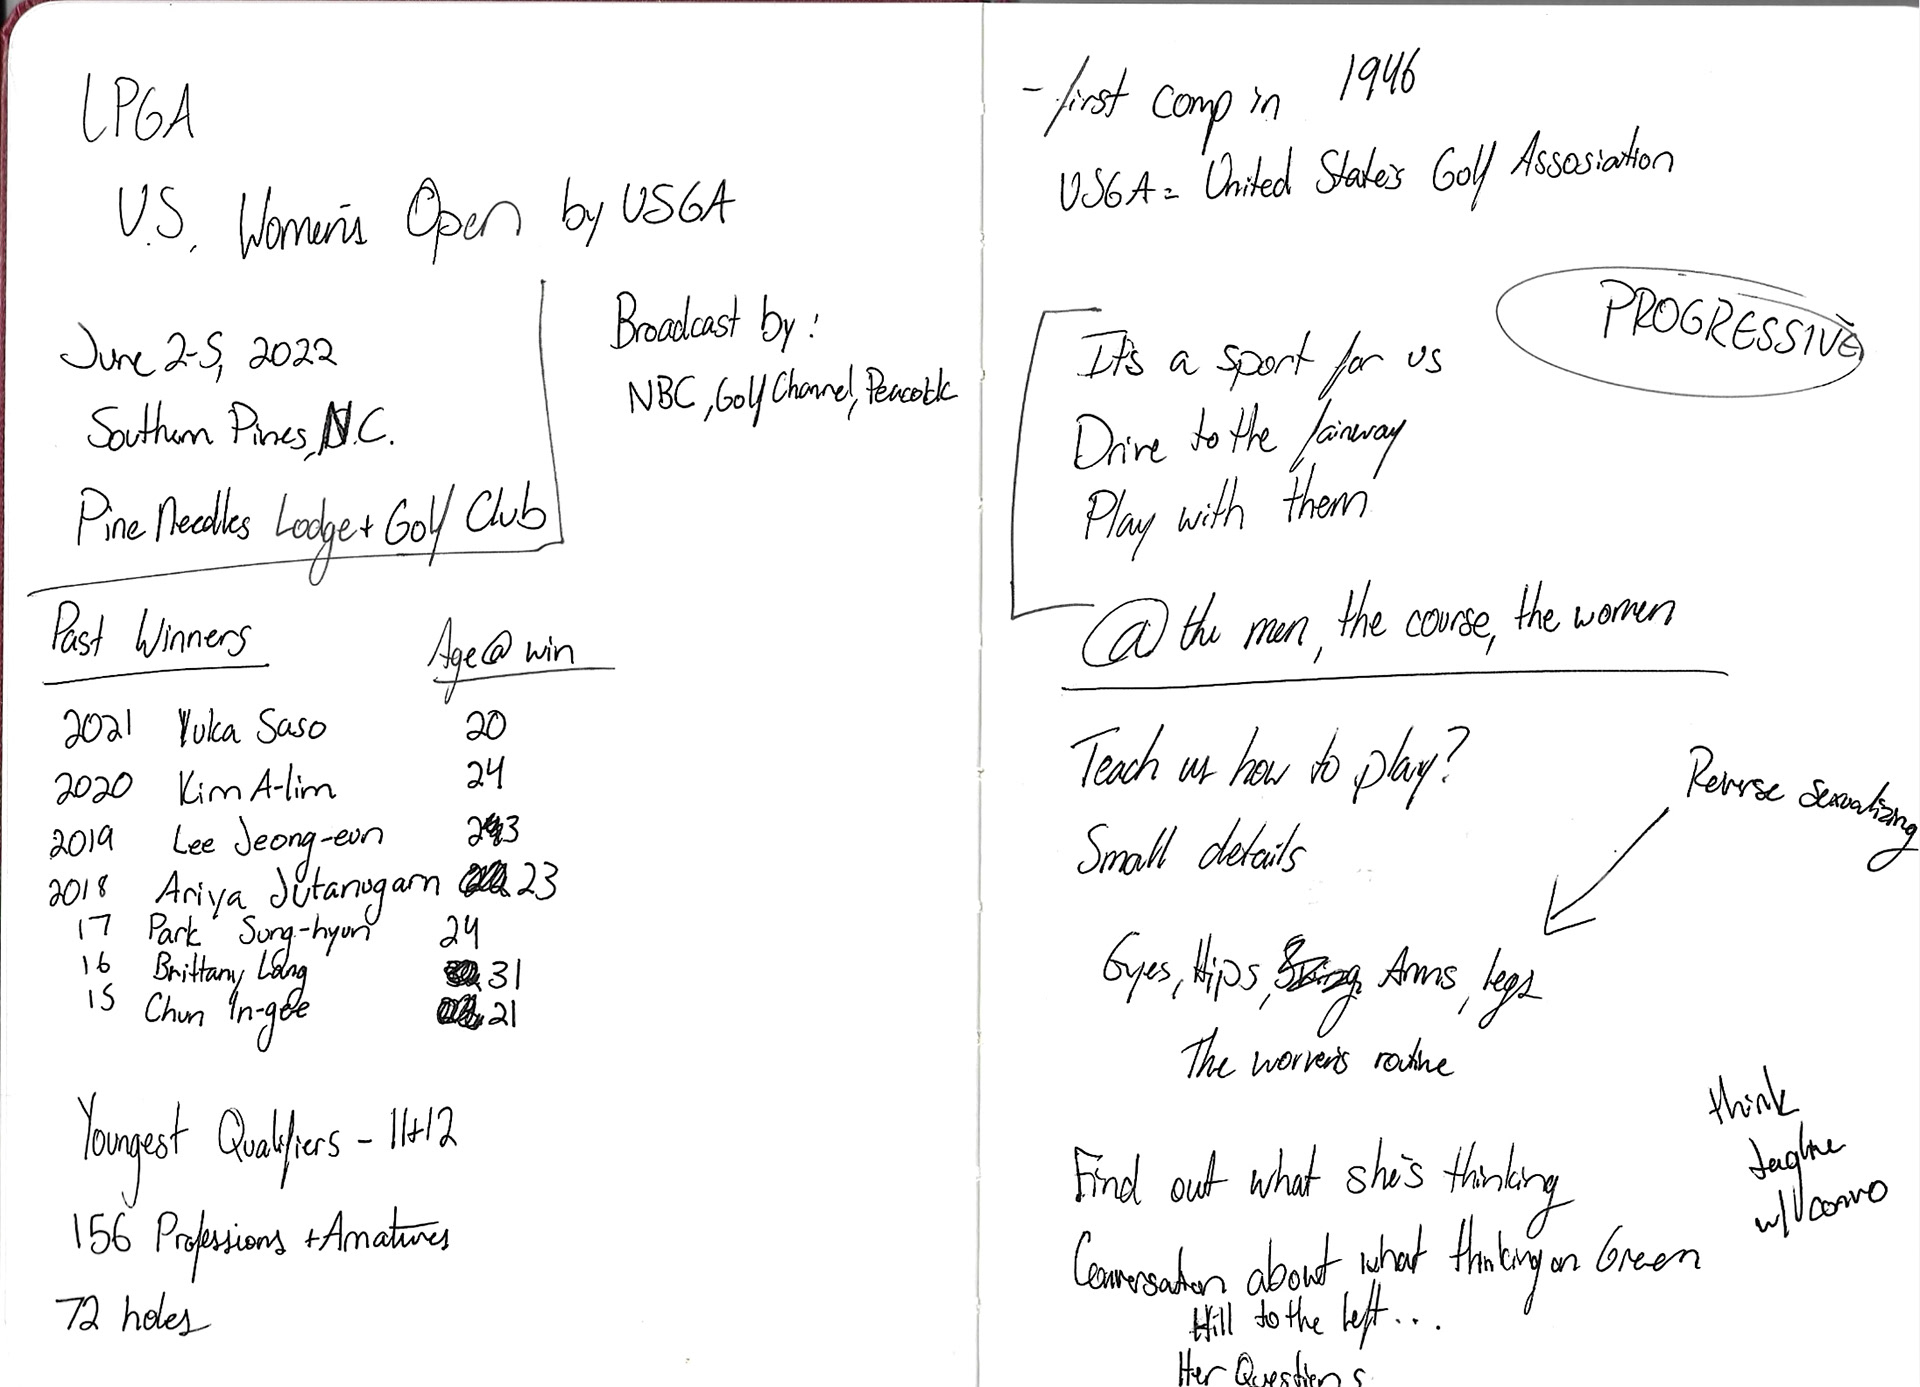 LPGA
U.S. Women's Open by USGA
June 2-5, 2022
Southern Pines, N.C.
Pine Needles Lodge + Golf Club
Broadcast by:
NBC, Golf Channel, Peacock
Past Winners Age @ win
2021 Yuka Saso 20
2020 Kim A-lim 24
2019 Lee Jeong-eun 23
2018 Ariya Jutanugarn 23
17 Park Sung-hyun 24
16 Brittany Lang 31
15 Chun In-gee 21
Youngest Qualifiers - 11+12
156 Professions + Amatures
72 holes
- first comp in 1946
USGA = United State's Golf Assosiation
PROGRESSIVE
It's a sport for us
Drive to the fairway
Play with them
@ the men, the course, the women
Teach us how to play?
Small details
Reverse sexualizing
Eyes, Hips, Arms, legs
The women's routine
think
tagline
w/ convo
Find out what she's thinking
Conversation about what thinking on Green
Hill to the left...
Her Questions